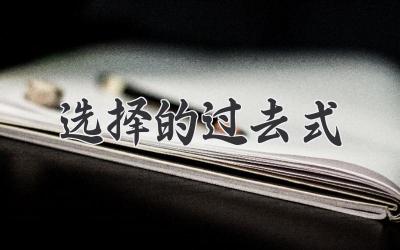 选择的过去式